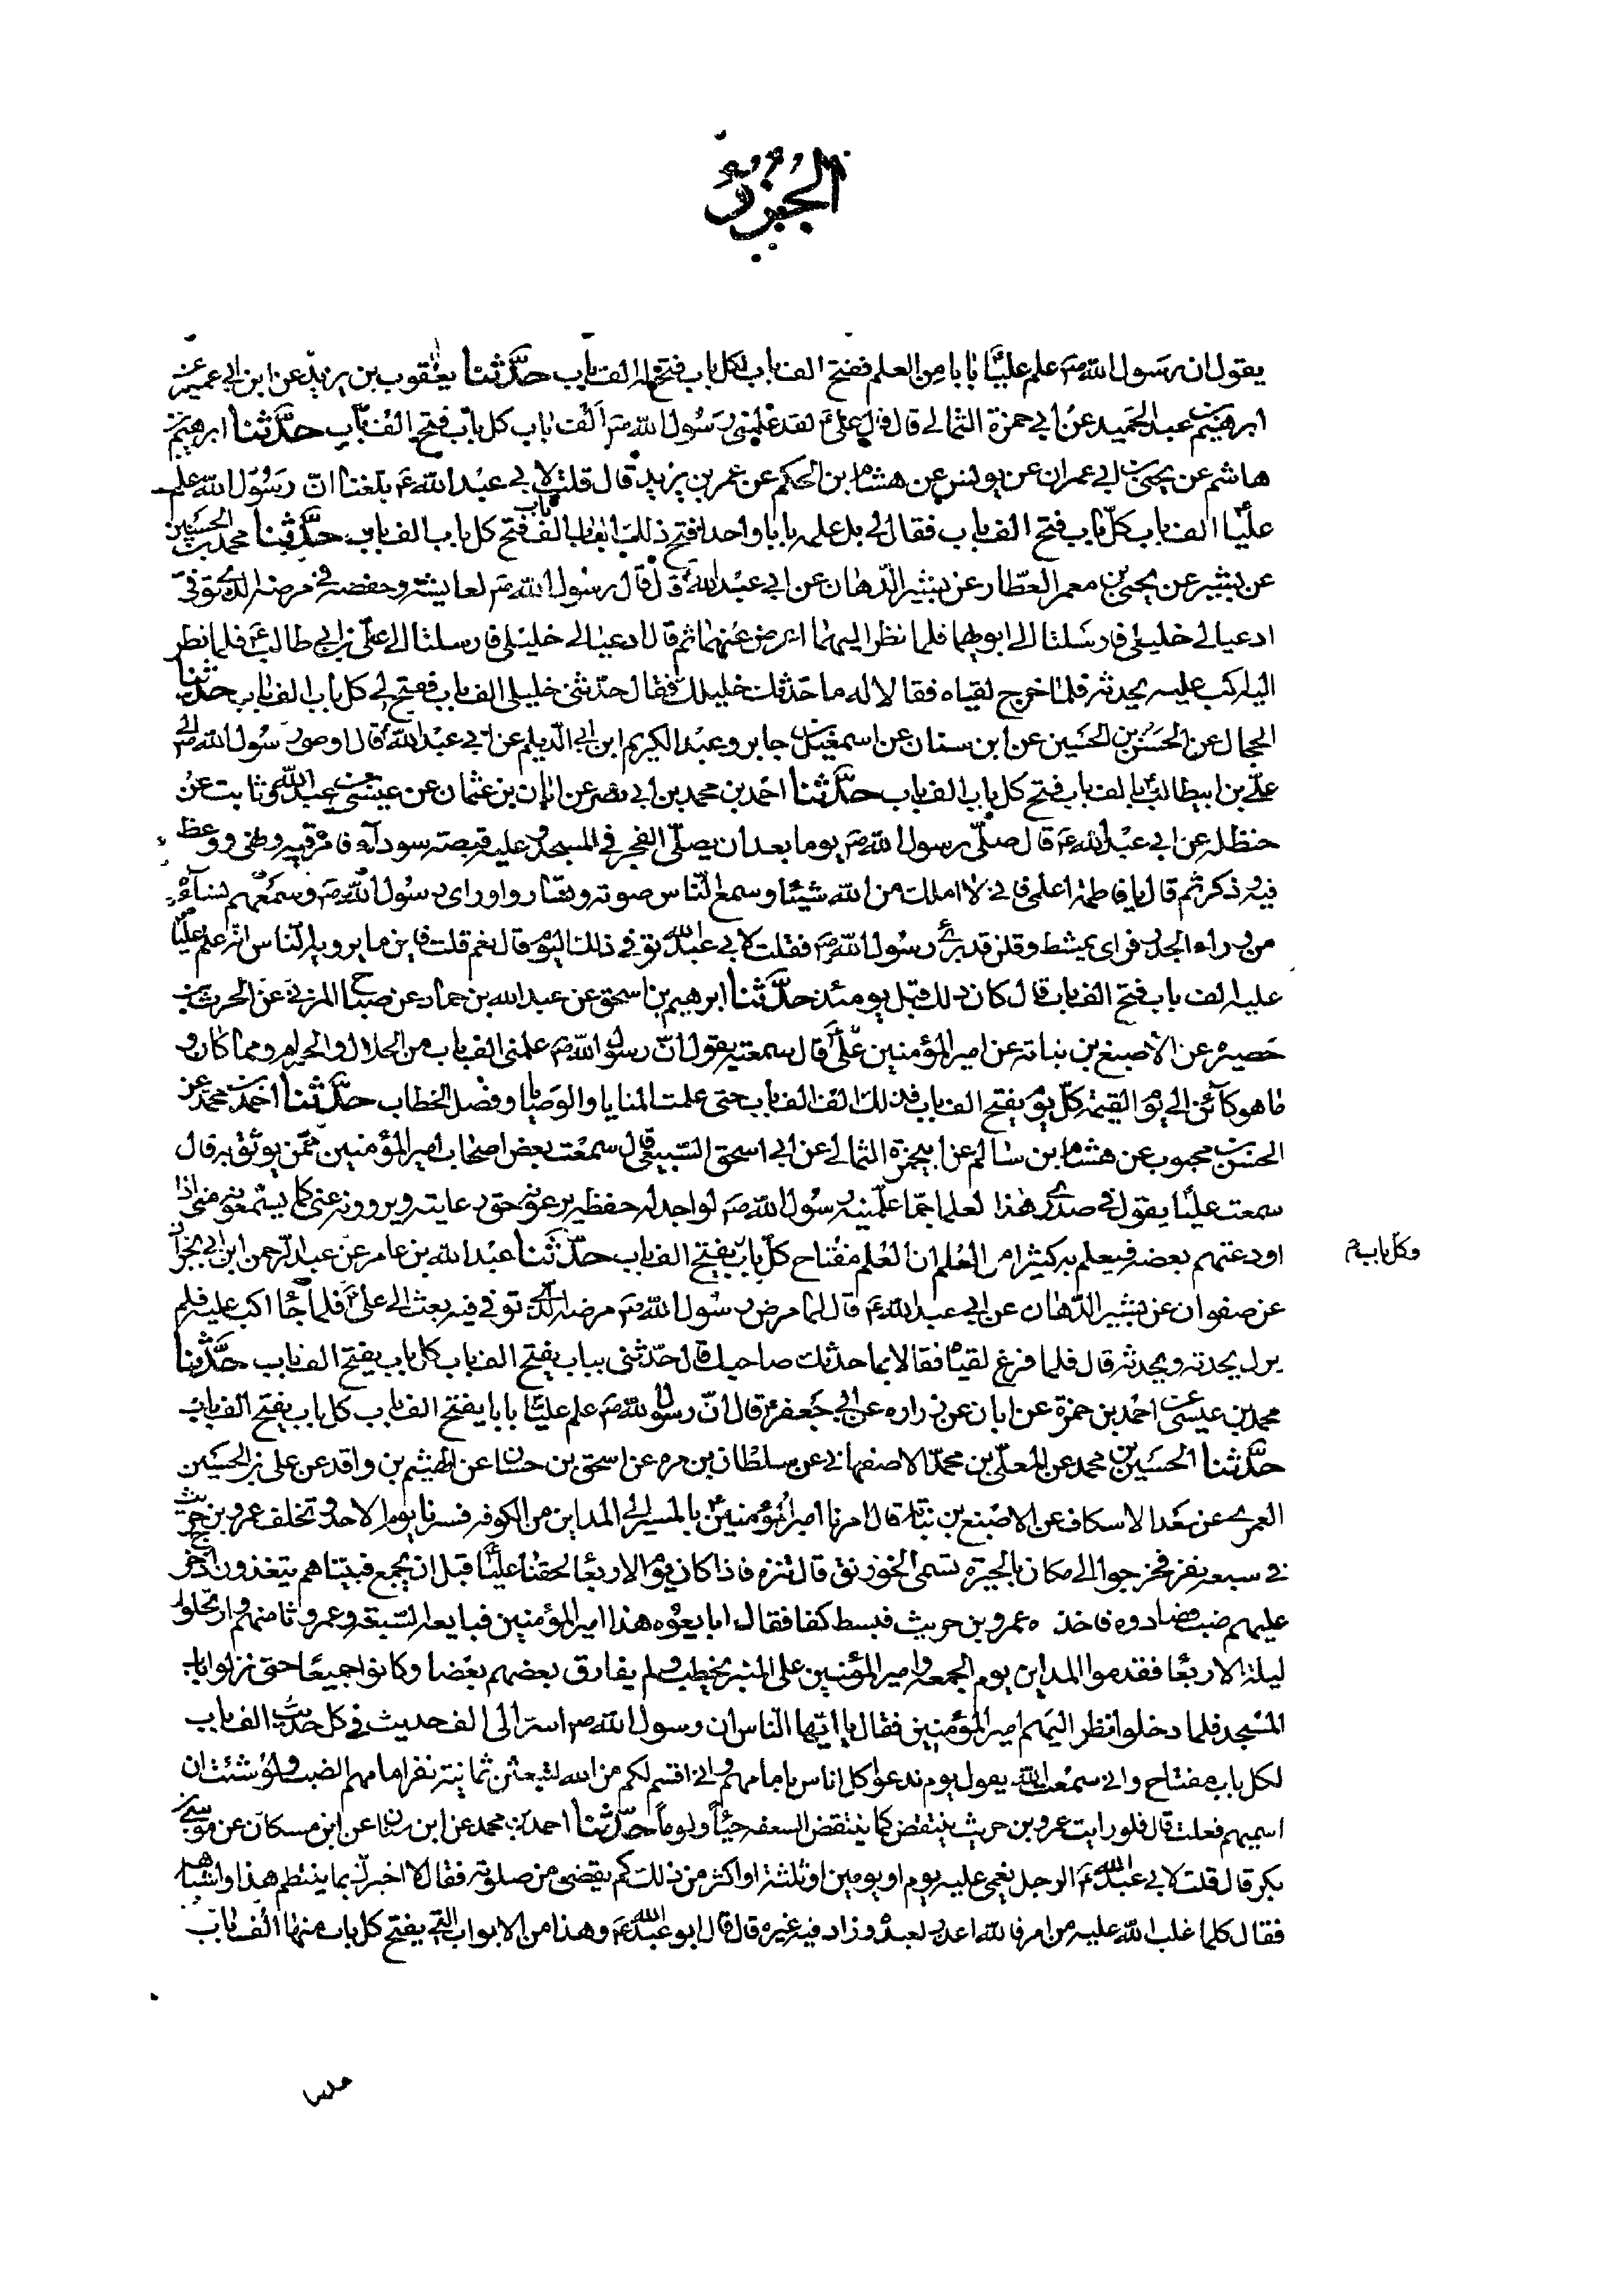 الجُزءُ
يقول ان رسول الله ص علم عليّا بابا من العلم ففتح الف باب لكل باب فتح له الف باب حدّثنا يعقوب بن يزيد عن ابن ابي عمير عن
ابرهيم بن عبد الحميد عن ابي حمزة الثمالي قال قال علي ع لقد علمني رسول الله ص الف باب كل باب فتح الف باب حدّثنا ابرهيم بن
هاشم عن يحيى بن ابي عمران عن يونس عن هشام بن الحكم عن عمر بن يزيد قال قلت لابي عبد الله ع بلغنا انّ رسول الله علم
عليّا الف باب كلّ باب فتح الف باب فقال لي بل علمه بابا واحدا فتح ذلك الباب الف باب فتح كل باب الف باب حدّثنا محمد بن الحسين
عن بشير عن يحيى بن معمر العطّار عن بشير الدّهان عن ابي عبد الله ع قال قال رسول الله ص لعايشة وحفصة في مرضه الذي توفي
ادعيا لي خليلي فارسلتا الى ابويهما فلما نظر اليهما اعرض عنهما ثم قال ادعيا لي خليلي فارسلتا الى علي بن ابي طالب ع فلما نظر
اليه اكب عليه يحدثه فلما خرج لقياه فقالا له ما حدّثك خليلك فقال حدّثني خليلي الف باب ففتح لي كل باب الف باب حدثنا
الحجال عن الحسن بن الحسين عن ابن سنان عن اسمعيل بن جابر وعبد الكريم ابن ابي الديلم عن ابي عبد الله ع قال اوصى رسول الله ص الى
علي بن ابيطالب ع بالف باب فتح كل باب الف باب حدّثنا احمد بن محمد بن ابي نصر عن ابان بن عثمان عن عيسى بن عبد الله وثابت عن
حنظله عن ابي عبد الله ع قال صلّى رسول الله ص يوما بعد ان يصلّي الفجر في المسجد وعليه قميصة سودآء فامر فيه ونهى ووعظ
فيه وذكر ثم قال يا فاطمه اعلمي فاني لا املك من الله شيئا وسمع الناس صوته وتقاروا وراى رسول الله ص وسمعهم نساؤه
من وراء الجدر فراى يمشط وقلن قد برئ رسول الله ص فقلت لابي عبد الله توفي ذلك اليوم قال نعم قلت فاين ما يرويه الناس انه علم عليّا
عليه الف باب فتح الف باب قال كان ذلك قبل يومئذ حدّثنا ابرهيم بن اسحق عن عبد الله بن حماد عن صباح المزني عن الحرث بن
حصيرة عن الاصبغ بن نباتة عن امير المؤمنين علي ع قال سمعته يقول انّ رسول الله ص علمني الف باب من الحلال والحرام ومما كان و
ما هو كائن الى يوم القيمة كلّ يوم يفتح الف باب فذلك الف الف باب حتى علمت المنايا والوصايا وفصل الخطاب حدّثنا احمد بن محمد عن
الحسن بن محبوب عن هشام بن سالم عن ابيحمزة الثمالي عن ابي اسحق السّبيعي قال سمعت بعض اصحاب امير المؤمنين ممّن يوثق به قال
سمعت عليّا يقول انّ في صدري هذا لعلما جمّا علّمنيه رسول الله ص لو اجد له حفظة يرعونه حق رعايته ويروونه عني كما يسمعونه مني اذا
اودعتهم بعضه فيعلم به كثيرا من العلم ان العلم مفتاح كلّ باب يفتح الف باب حدّثنا عبد الله بن عامر عن عبد الرحمن ابن ابي نجران
وكل باب م
عن صفوان عن بشير الدّهان عن ابي عبد الله ع قال لما مرض رسول الله ص مرضه الذي توفي فيه بعث الى علي ع فلما جاء اكب عليه فلم
يزل يحدثه ويحدثه قال فلما فرغ لقياه فقالا بما حدثك صاحبك قال حدّثني بباب يفتح الف باب كل باب يفتح الف باب حدّثنا
محمد بن عيسى عن احمد بن حمزة عن ابان عن زراره عن ابي جعفر ع قال انّ رسول الله ص علم عليّا بابا يفتح الف باب كل باب يفتح الف باب
حدّثنا الحسين بن محمد عن المعلّى بن محمّد الاصفهاني عن سلطان بن مرم عن اسحق بن حسان عن الهيثم بن واقد عن علي بن الحسين
العمري عن سعد الاسكاف عن الاصبغ بن نباتة قال امرنا امير المؤمنين ع بالمسير الى المداين من الكوفه فسرنا يوم الاحد وتخلف عمرو بن حريث
في سبعة نفر فخرجوا الى مكان بالحيرة يسمى الخورنق قال نتنزه فاذا كان يوم الاربعا لحقنا عليّا ع قبل ان يجمع فبينا هم يتغذون اذ خرج
عليهم ضب فصادوه فاخذه عمرو بن حريث فبسط كفا فقال ابايعوه هذا امير المؤمنين فبايعه السّبعة وعمرو ثامنهم وارتحلوا
ليلة الاربعا فقدموا المداين يوم الجمعه وامير المؤمنين على المنبر يخطب ولم يفارق بعضهم بعضا وكانوا جميعا حتى نزلوا باب
المسجد فلما دخلوا نظر اليهم امير المؤمنين فقال يا ايّها الناس ان رسول الله ص اسرّ الى الف حديث في كل حديث الف باب
لكل باب مفتاح واني سمعت الله يقول يوم ندعوا كل اناس بامامهم واني اقسم لكم من الله لتبعثن ثمانية نفر امامهم الضب ولو شئت ان
اسميهم فعلت قال فلو رايت عمرو بن حريث ينتفض كما ينتفض السعفه حيّاً ولوماً حدّثنا احمد بن محمد عن ابن سنان عن ابن مسكان عن موسى بن
بكر قال قلت لابي عبد الله ع الرجل يغمى عليه يوم او يومين او ثلثة او اكثر من ذلك كم يقضي من صلوته فقال الا اخبرك بما ينتظم هذا واشباهه
فقال كلما غلب الله عليه من امر فالله اعذر لعبده وزاد فيه غيره قال قال ابو عبد الله ع وهذا من الابواب التي يفتح كل باب منها الف باب